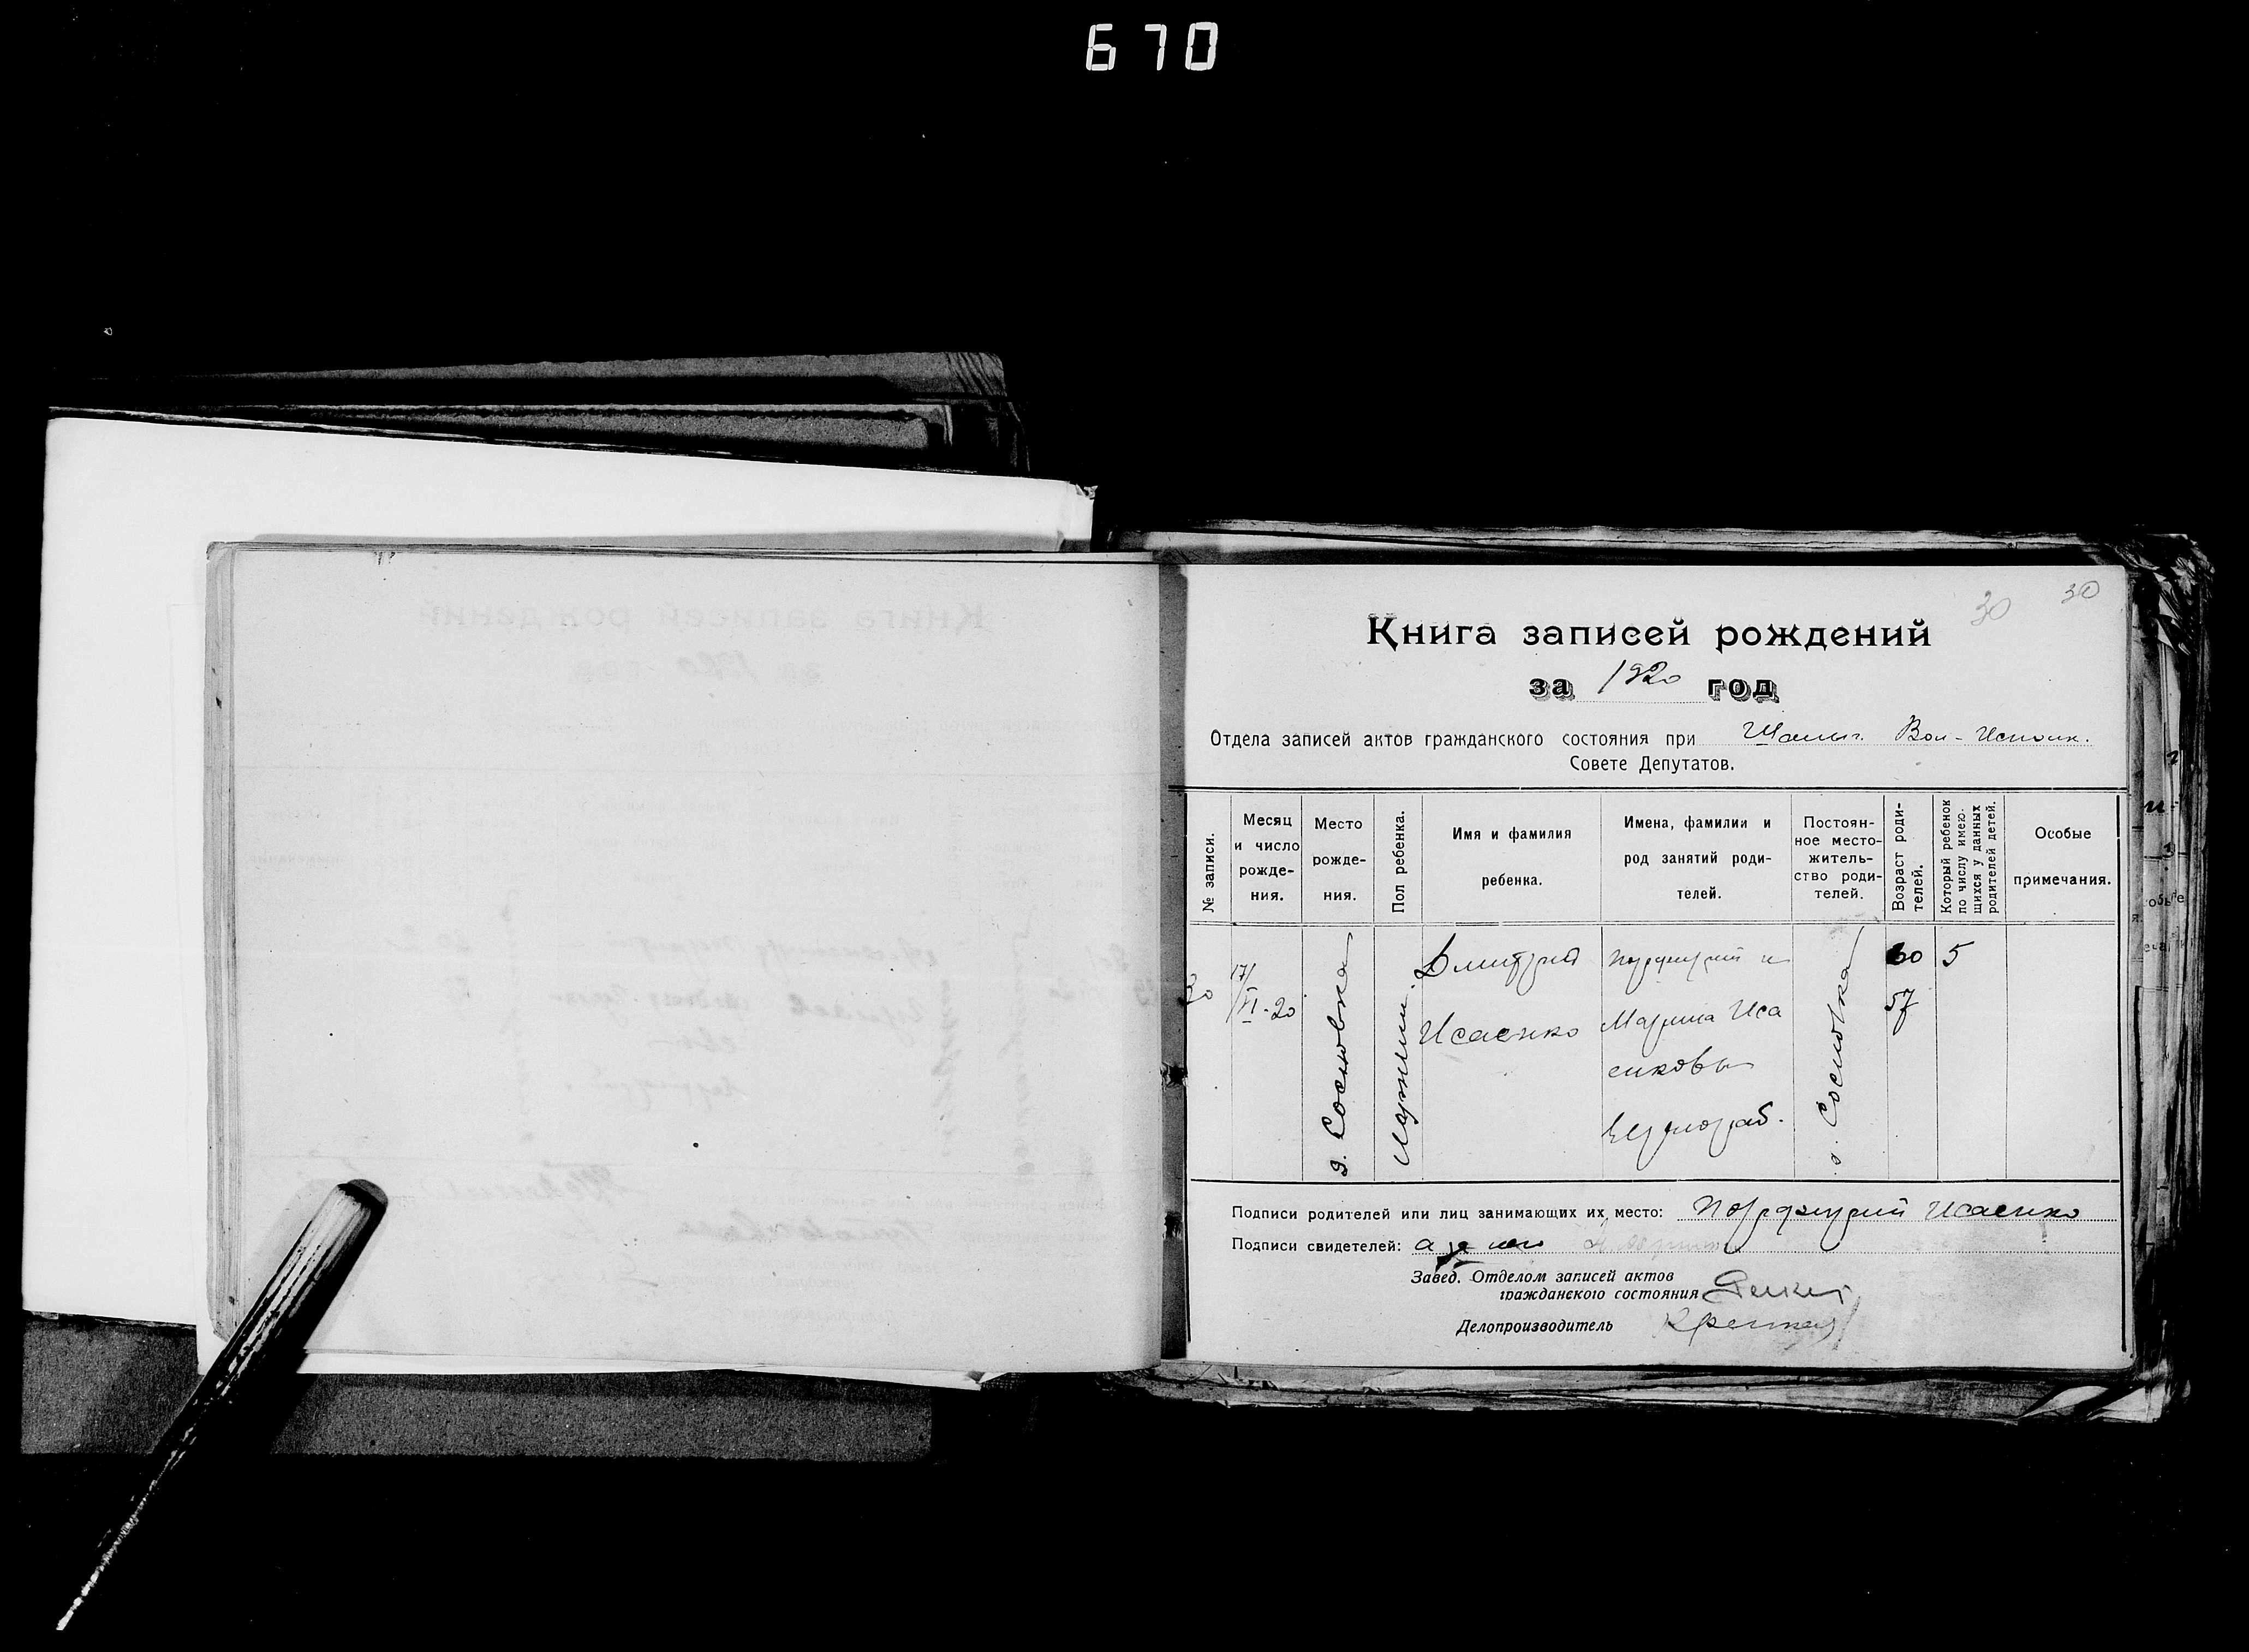 670
30 30
Книга записей рождений
за 1920 год
Отдела записей актов гражданского состояния при Шалыг. Вол-Исполк.
Совете Депутатов.
№ записи.
Месяц и число рожде-ния.
Место рожде-ния.
Пол ребенка.
Имя и фамилия ребенка.
Имена, фамилии и род занятий роди-телей.
Постоян-ное место-житель-ство роди-телей.
Возраст роди-телей.
Который ребенок по числу имею-щихся у данных родителей детей.
Особые примечания.
30
17/VI-20
д. Сосновка
Мужчин.
Дмитрий
Исаенко
Порфирий и
Марина Иса
енковы
д. Сосновка
60
57
5
Подписи родителей или лиц занимающих их место: Порфирий Исаенко
Подписи свидетелей:
Завед. Отделом записей актов
гражданского состояния
Делопроизводитель